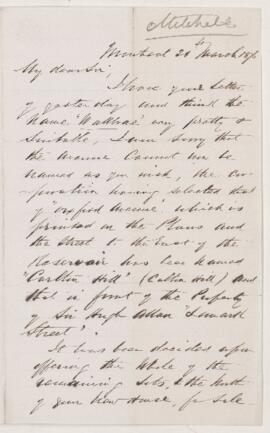 Mitchell
Montreal 21st March 187
My dear Sir,
I have your letter
of yesterday and think the
name "Wallbrae" very pretty &
suitable, I am sorry that
the Avenue cannot now be
named as you wish, the cor-
poration having selected that
of "Oxford Avenue", which is
printed on the Plans and
the Street to the East of the
Reservoir has been named
"Carlton Hill" (Calton Hill) and
that in front of the Property
of Sir Hugh Allan
Street".
It has been decided upon
offering the whole of the
remaining Lots, to the North
of your New House, for Sale